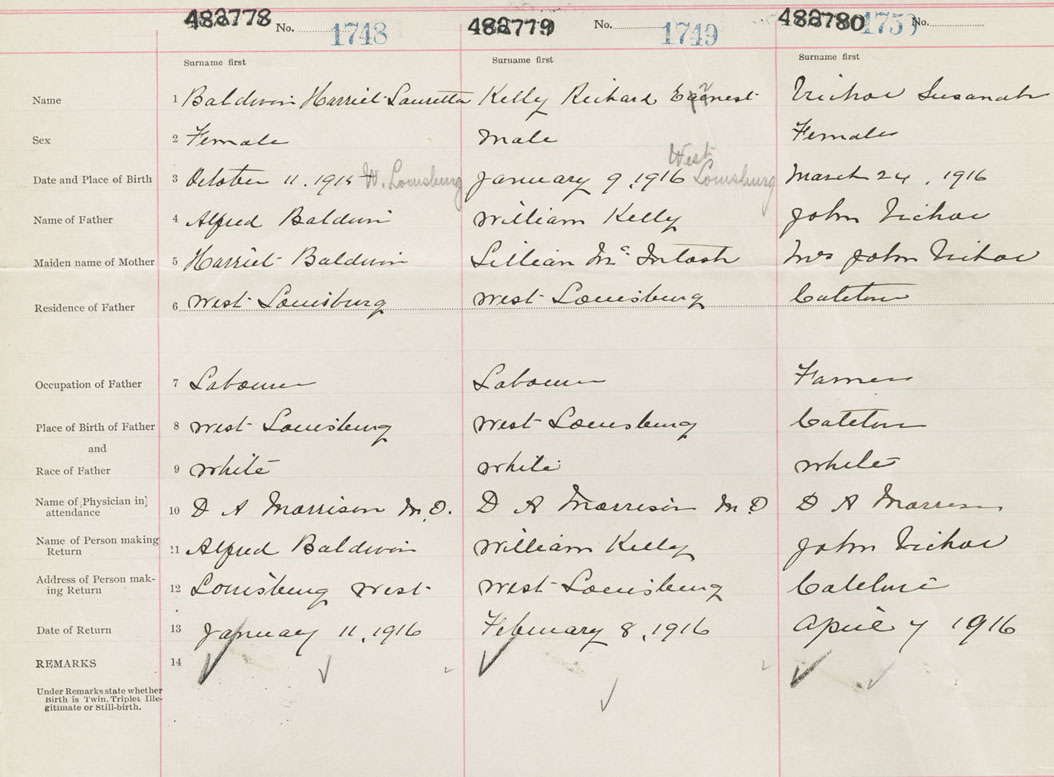 482778 No. 1748 482779 No. 1749 482780 No.
Surname first Surname first Surname first
Name 1 Baldwin Harriet Lauretta Kelly Richard Earnest Susanah
Sex 2 Female Male Female
West
Date and Place of Birth 3 October 11, 1915 W. Louisburg January 9, 1916 Louisburg March 24, 1916
Name of Father 4 Alfred Baldwin William Kelly John
Maiden name of Mother 5 Harriet Baldwin Lillian McIntosh Mrs John
Residence of Father 6 West Louisburg West Louisburg Catelone
Occupation of Father 7 Labourer Labourer Farmer
Place of Birth of Father 8 West Louisburg West Louisburg Catelone
and
Race of Father 9 White White White
Name of Physician in
attendance 10 D A Morrison M.D. D A Morrison M D D A Morrison
Name of Person making
Return 11 Alfred Baldwin William Kelly John
Address of Person mak-
ing Return 12 Louisburg West West Louisburg Catelone
Date of Return 13 January 11, 1916 February 8, 1916 April 7 1916
REMARKS 14
Under Remarks state whether
Birth is Twin, Triplet Ille-
gitimate or Still-birth.